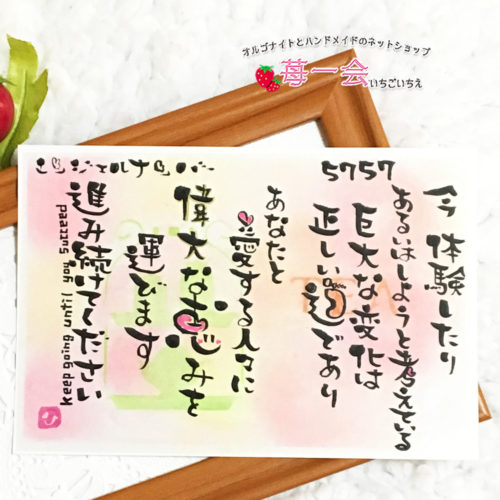 オルゴナイトとハンドメイドのネットショップ
苺一会いちごいちえ
エンジェルナンバー
5757
今 体験したり
あるいはしようと考えている
巨大な変化は
正しい道であり
あなたと
愛する人々に
偉大な恵みを
運びます
進み続けてください
Keep going until you succeed